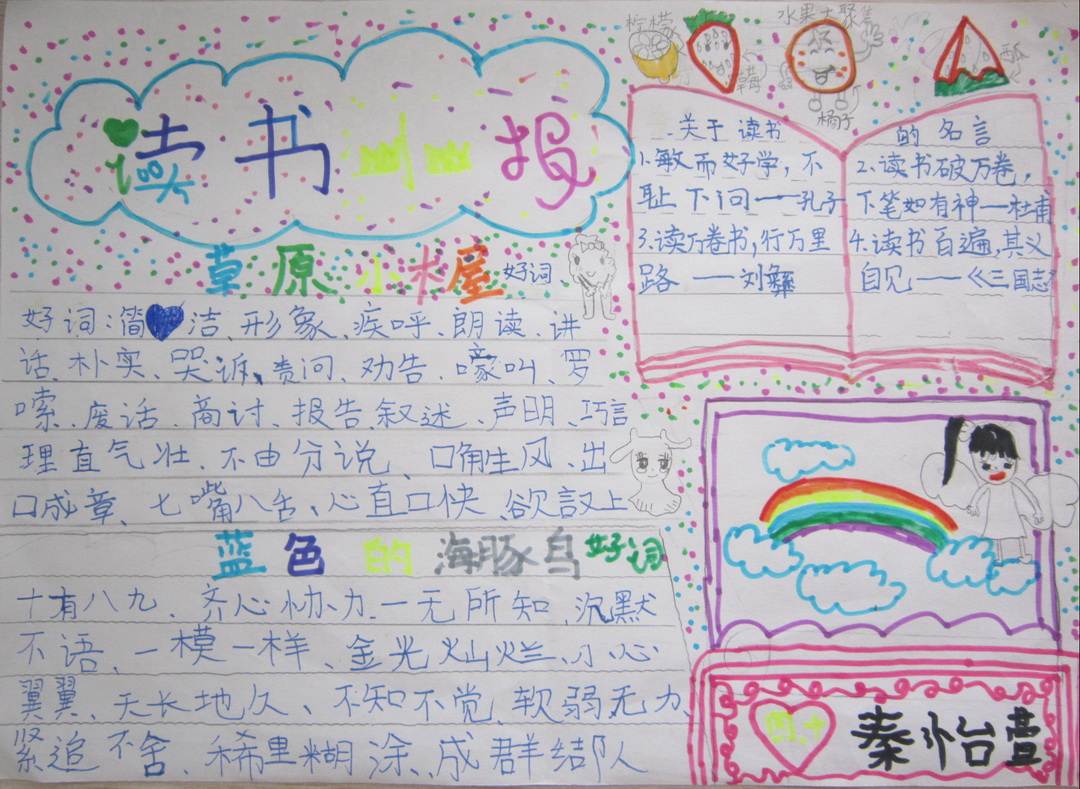 读书小报
柠檬
水果大聚集
草莓
橘子
关于读书
1.敏而好学,不
耻下问——孔子
3.读万卷书,行万里
路——刘彝
的名言
2.读书破万卷,
下笔如有神—杜甫
4.读书百遍,其义
自见——《三国志》
草原小木屋 好词
好词:简洁、形象、疾呼、朗读、讲
话、朴实、哭诉、责问、劝告、嚎叫、罗
嗦、废话、商讨、报告、叙述、声明、巧言
理直气壮、不由分说、口角生风、出
口成章、七嘴八舌、心直口快、欲言又止
蓝色的海豚岛好词
十有八九、齐心协力、一无所知、沉默
不语、一模一样、金光灿烂、小心
翼翼、天长地久、不知不觉、软弱无力、
紧追不舍、稀里糊涂、成群结队
四.十
秦怡萱